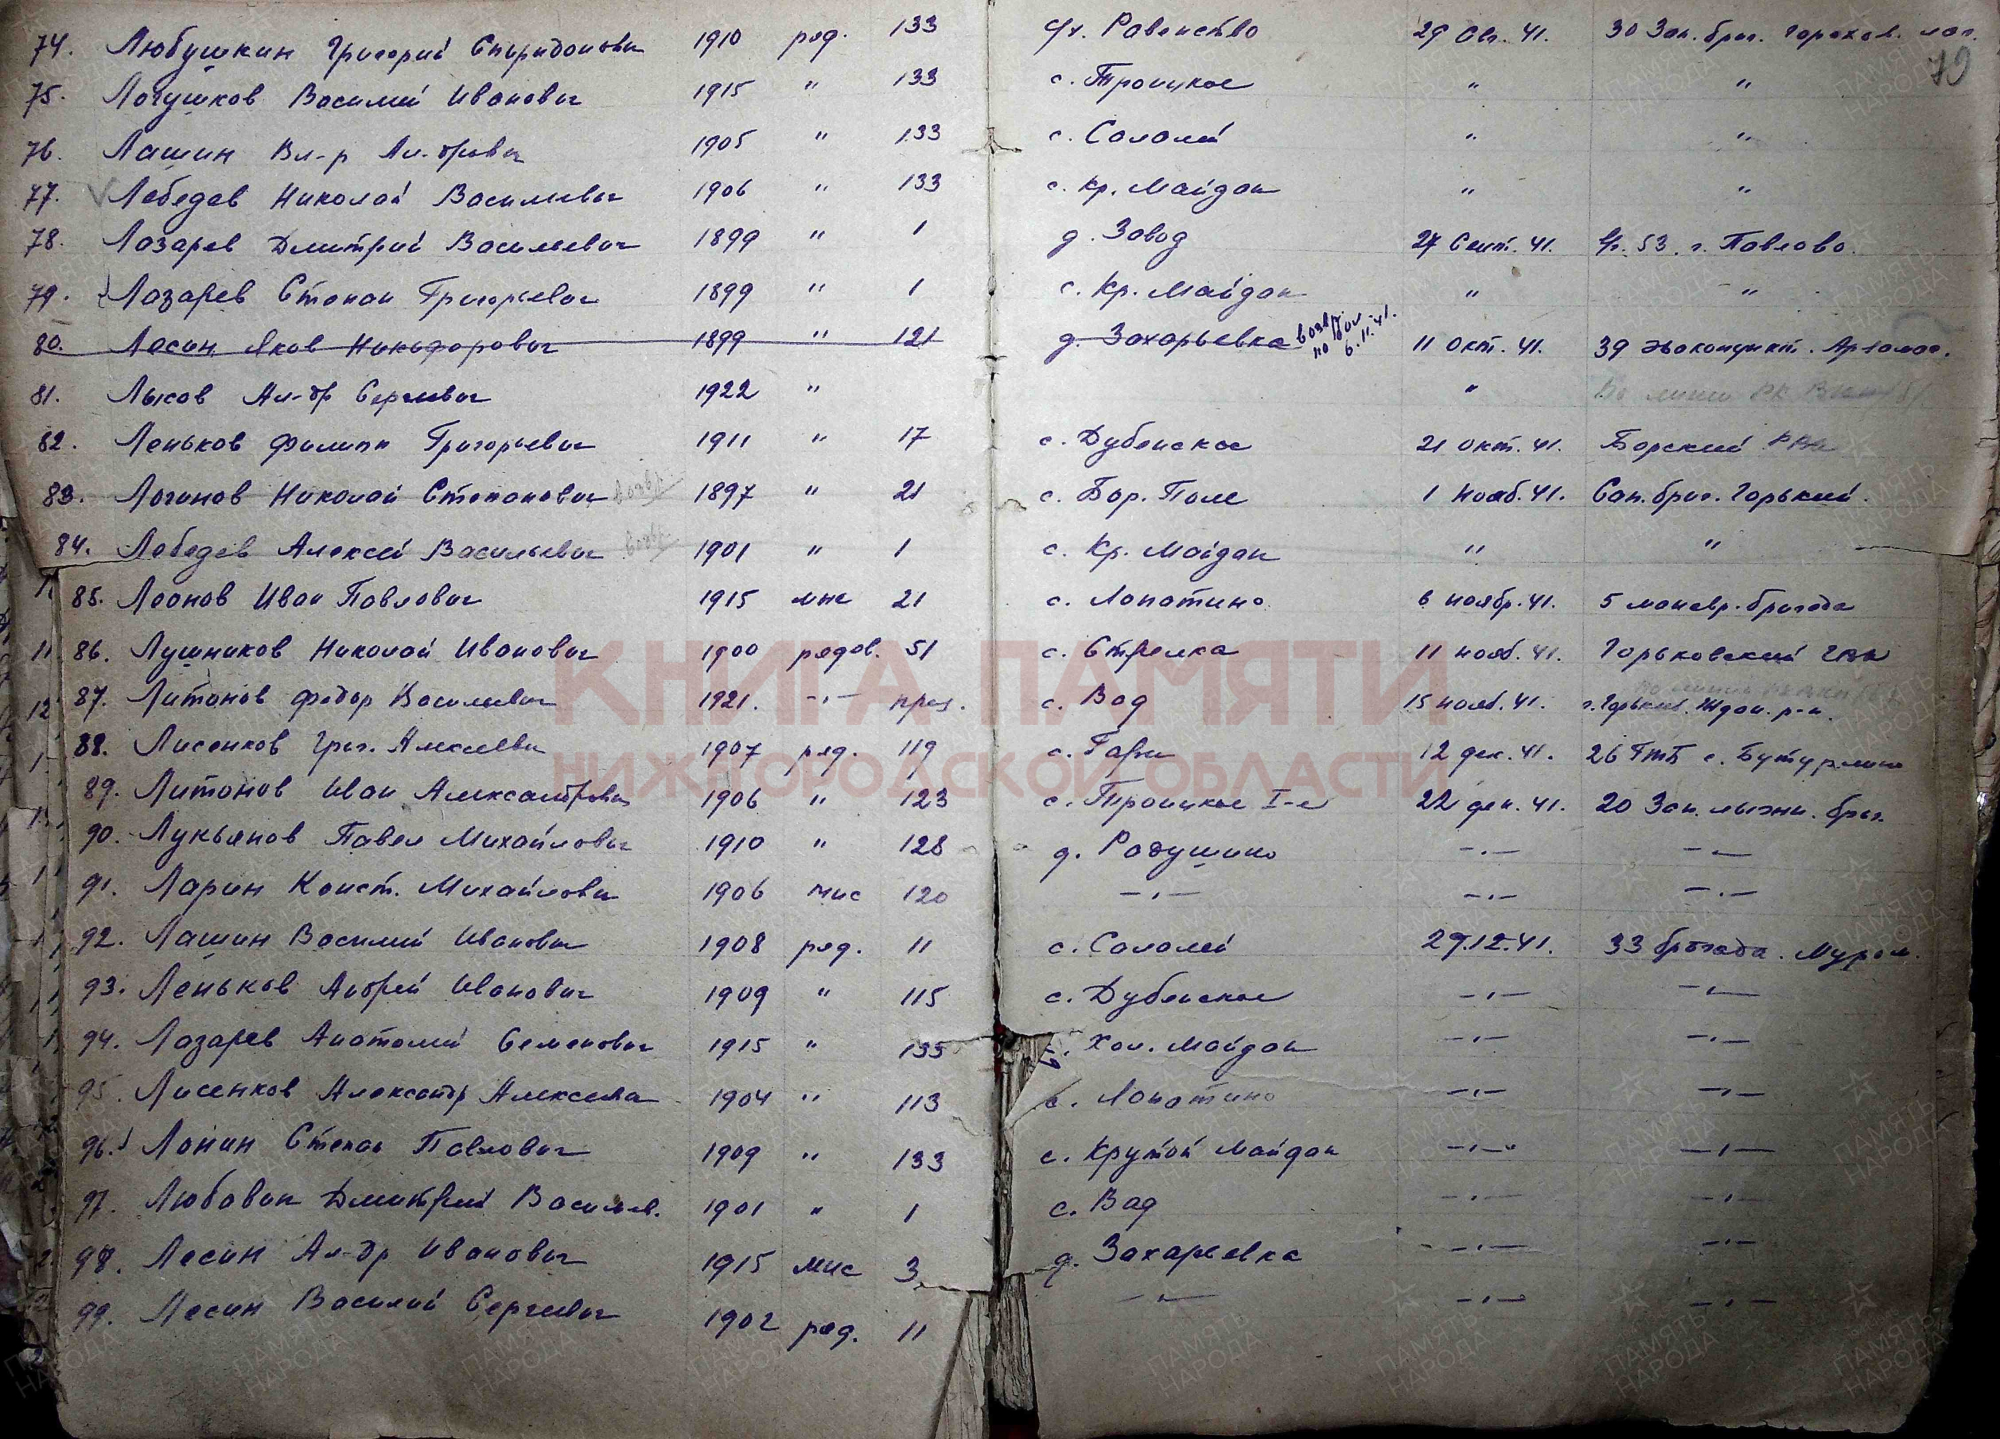 79
74. Любушкин Григорий Спиридонович 1910 ряд. 133 с/х. Равенство 29 Авг. 41. 30 Зап. бриг. Горохов. лаг.
75. Логушков Василий Иванович 1915 " 133 с. Троицкое " "
76. Лашин Вл-р Ал-дрович 1905 " 133 с. Салалей " "
77. Лебедев Николай Васильевич 1906 " 133 с. Кр. Майдан " "
78. Лазарев Дмитрий Васильевич 1899 " 1 д. Завод 27 Сент. 41. в/ч. 53. г. Павлово.
79. Лазарев Степан Григорьевич 1899 " 1 с. Кр. Майдан " "
80. Лесин Яков Никифорович 1899 " 121 д. Захарьевка возвр. по бол. 6.11.41. 11 Окт. 41. 39 эвакопункт. Арзамас.
81. Лысов Ал-др Сергеевич 1922 " " По линии РК
82. Леньков Филипп Григорьевич 1911 " 17 с. Дубенское 21 Окт. 41. Борский РВК
83. Логинов Николай Степанович возвр. 1897 " 21 с. Бор. Поле 1 Нояб. 41. Сап. бриг. Горький.
84. Лебедев Алексей Васильевич возвр. 1901 " 1 с. Кр. Майдан " "
85. Леонов Иван Павлович 1915 мнс 21 с. Лопатино 6 ноябр. 41. 5 маневр. бригада
86. Лушников Николай Иванович 1900 рядов. 51 с. Стрелка 11 нояб. 41. Горьковский ГВК
87. Литонов Федор Васильевич 1921. -"- с. Вад 15 нояб. 41. г. Горький. Ждан. р-н.
88. Лисенков Григ. Алексеевич 1907 ряд. 119 с. Гари 12 дек. 41. 26 с. Бутурлино
89. Литонов Иван Александрович 1906 " 123 с. Троицкое I-е 22 дек. 41. 20 Зап. лыжн. бриг.
90. Лукьянов Павел Михайлович 1910 " 128 д. Радушино -"- -"-
91. Ларин Конст. Михайлович 1906 мнс 120 -"- -"- -"-
92. Лашин Василий Иванович 1908 ряд. 11 с. Салалей 29.12.41. 33 бригада. Муром.
93. Леньков Андрей Иванович 1909 " 115 с. Дубенское -"- -"-
94. Лазарев Анатолий Семенович 1915 " 133 с. Хол. Майдан -"- -"-
95. Лисенков Александр Алексеев 1904 " 113 с. Лопатино -"- -"-
96. Лонин Степан Павлович 1909 " 133 с. Крутой Майдан -"- -"-
97. Любавин Дмитрий Васильев. 1901 " 1 с. Вад -"- -"-
98. Лесин Ал-др Иванович 1915 мнс 3 д. Захарьевка -"- -"-
99. Лесин Василий Сергеевич 1902 ряд. 11 -"- -"- -"-
КНИГА ПАМЯТИ
НИЖЕГОРОДСКОЙ ОБЛАСТИ
ПАМЯТЬ НАРОДА